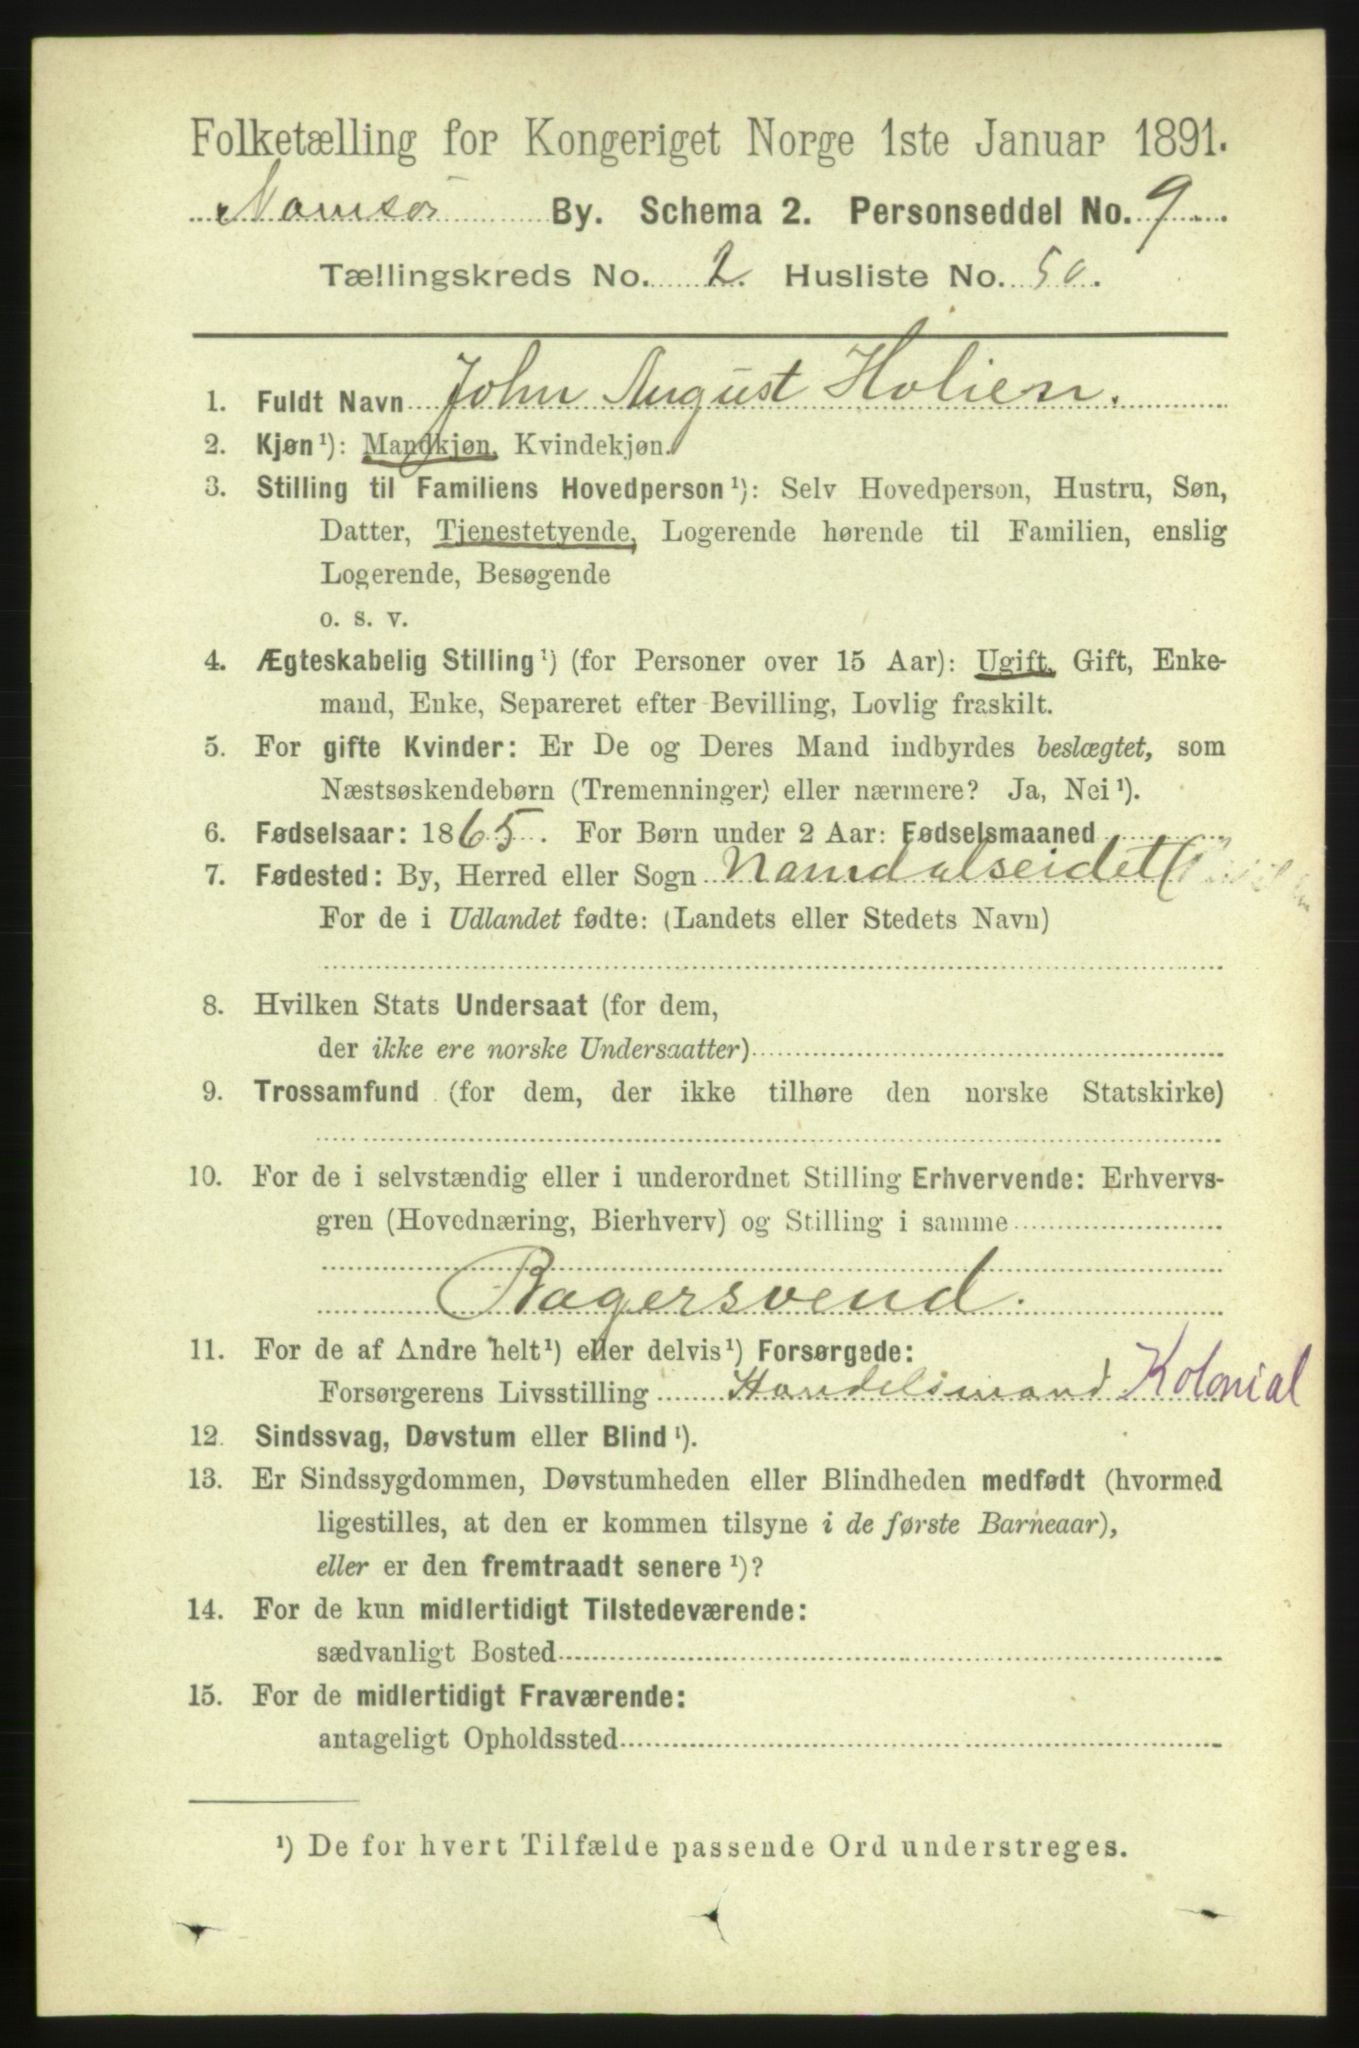 Folketælling for Kongeriget Norge 1ste Januar 1891.
Namsos By. Schema 2. Personseddel No. 9
Tællingskreds No. 2. Husliste No. 50.
1. Fuldt Navn John August Holien.
2. Kjøn¹): Mandkjøn, Kvindekjøn.
3. Stilling til Familiens Hovedperson¹): Selv Hovedperson, Hustru, Søn,
Datter, Tjenestetyende, Logerende hørende til Familien, enslig
Logerende, Besøgende
o. s. v.
4. Ægteskabelig Stilling¹) (for Personer over 15 Aar): Ugift, Gift, Enke-
mand, Enke, Separeret efter Bevilling, Lovlig fraskilt.
5. For gifte Kvinder: Er De og Deres Mand indbyrdes beslægtet, som
Næstsøskendebørn (Tremenninger) eller nærmere? Ja, Nei¹).
6. Fødselsaar: 1865. For Børn under 2 Aar: Fødselsmaaned
7. Fødested: By, Herred eller Sogn Namdalseidet
For de i Udlandet fødte: (Landets eller Stedets Navn)
8. Hvilken Stats Undersaat (for dem,
der ikke ere norske Undersaatter)
9. Trossamfund (for dem, der ikke tilhøre den norske Statskirke)
10. For de i selvstændig eller i underordnet Stilling Erhvervende: Erhvervs-
gren (Hovednæring, Bierhverv) og Stilling i samme
Bagersvend.
11. For de af Andre helt¹) eller delvis¹) Forsørgede:
Forsørgerens Livsstilling Handelsmand Kolonial
12. Sindssvag, Døvstum eller Blind¹).
13. Er Sindssygdommen, Døvstumheden eller Blindheden medfødt (hvormed
ligestilles, at den er kommen tilsyne i de første Barneaar),
eller er den fremtraadt senere¹)?
14. For de kun midlertidigt Tilstedeværende:
sædvanligt Bosted
15. For de midlertidigt Fraværende:
antageligt Opholdssted
¹) De for hvert Tilfælde passende Ord understreges.